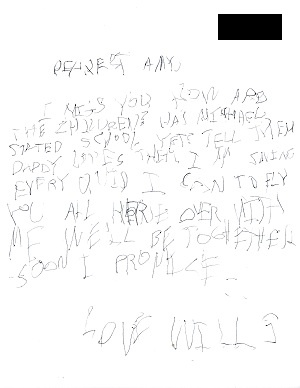 DEAREST AMY
I MISS YOU HOW ARE
THE CHILDREN? HAS MICHAEL
STATED SCHOOL YET? TELL THEM
DADDY LOVES THEM I M SAVING
EVERY I CAN TO FLY
YOU ALL HERE OVER WITH
ME WE LL BE TOGETHER
SOON I PROMICE
LOVE WILL